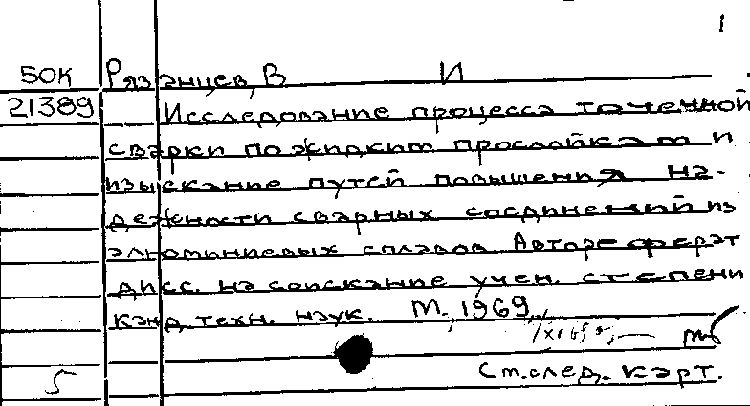 1
БОК Рязанцев, В И
21389 Исследование процесса точечной
сварки по жидким прослойкам и
изыскание путей повышения на-
дежности сварных соединений из
алюминиевых сплавов Автореферат
дисс. на соискание учен. степени
канд. техн. наук. М., 1969
5 См. след. карт.